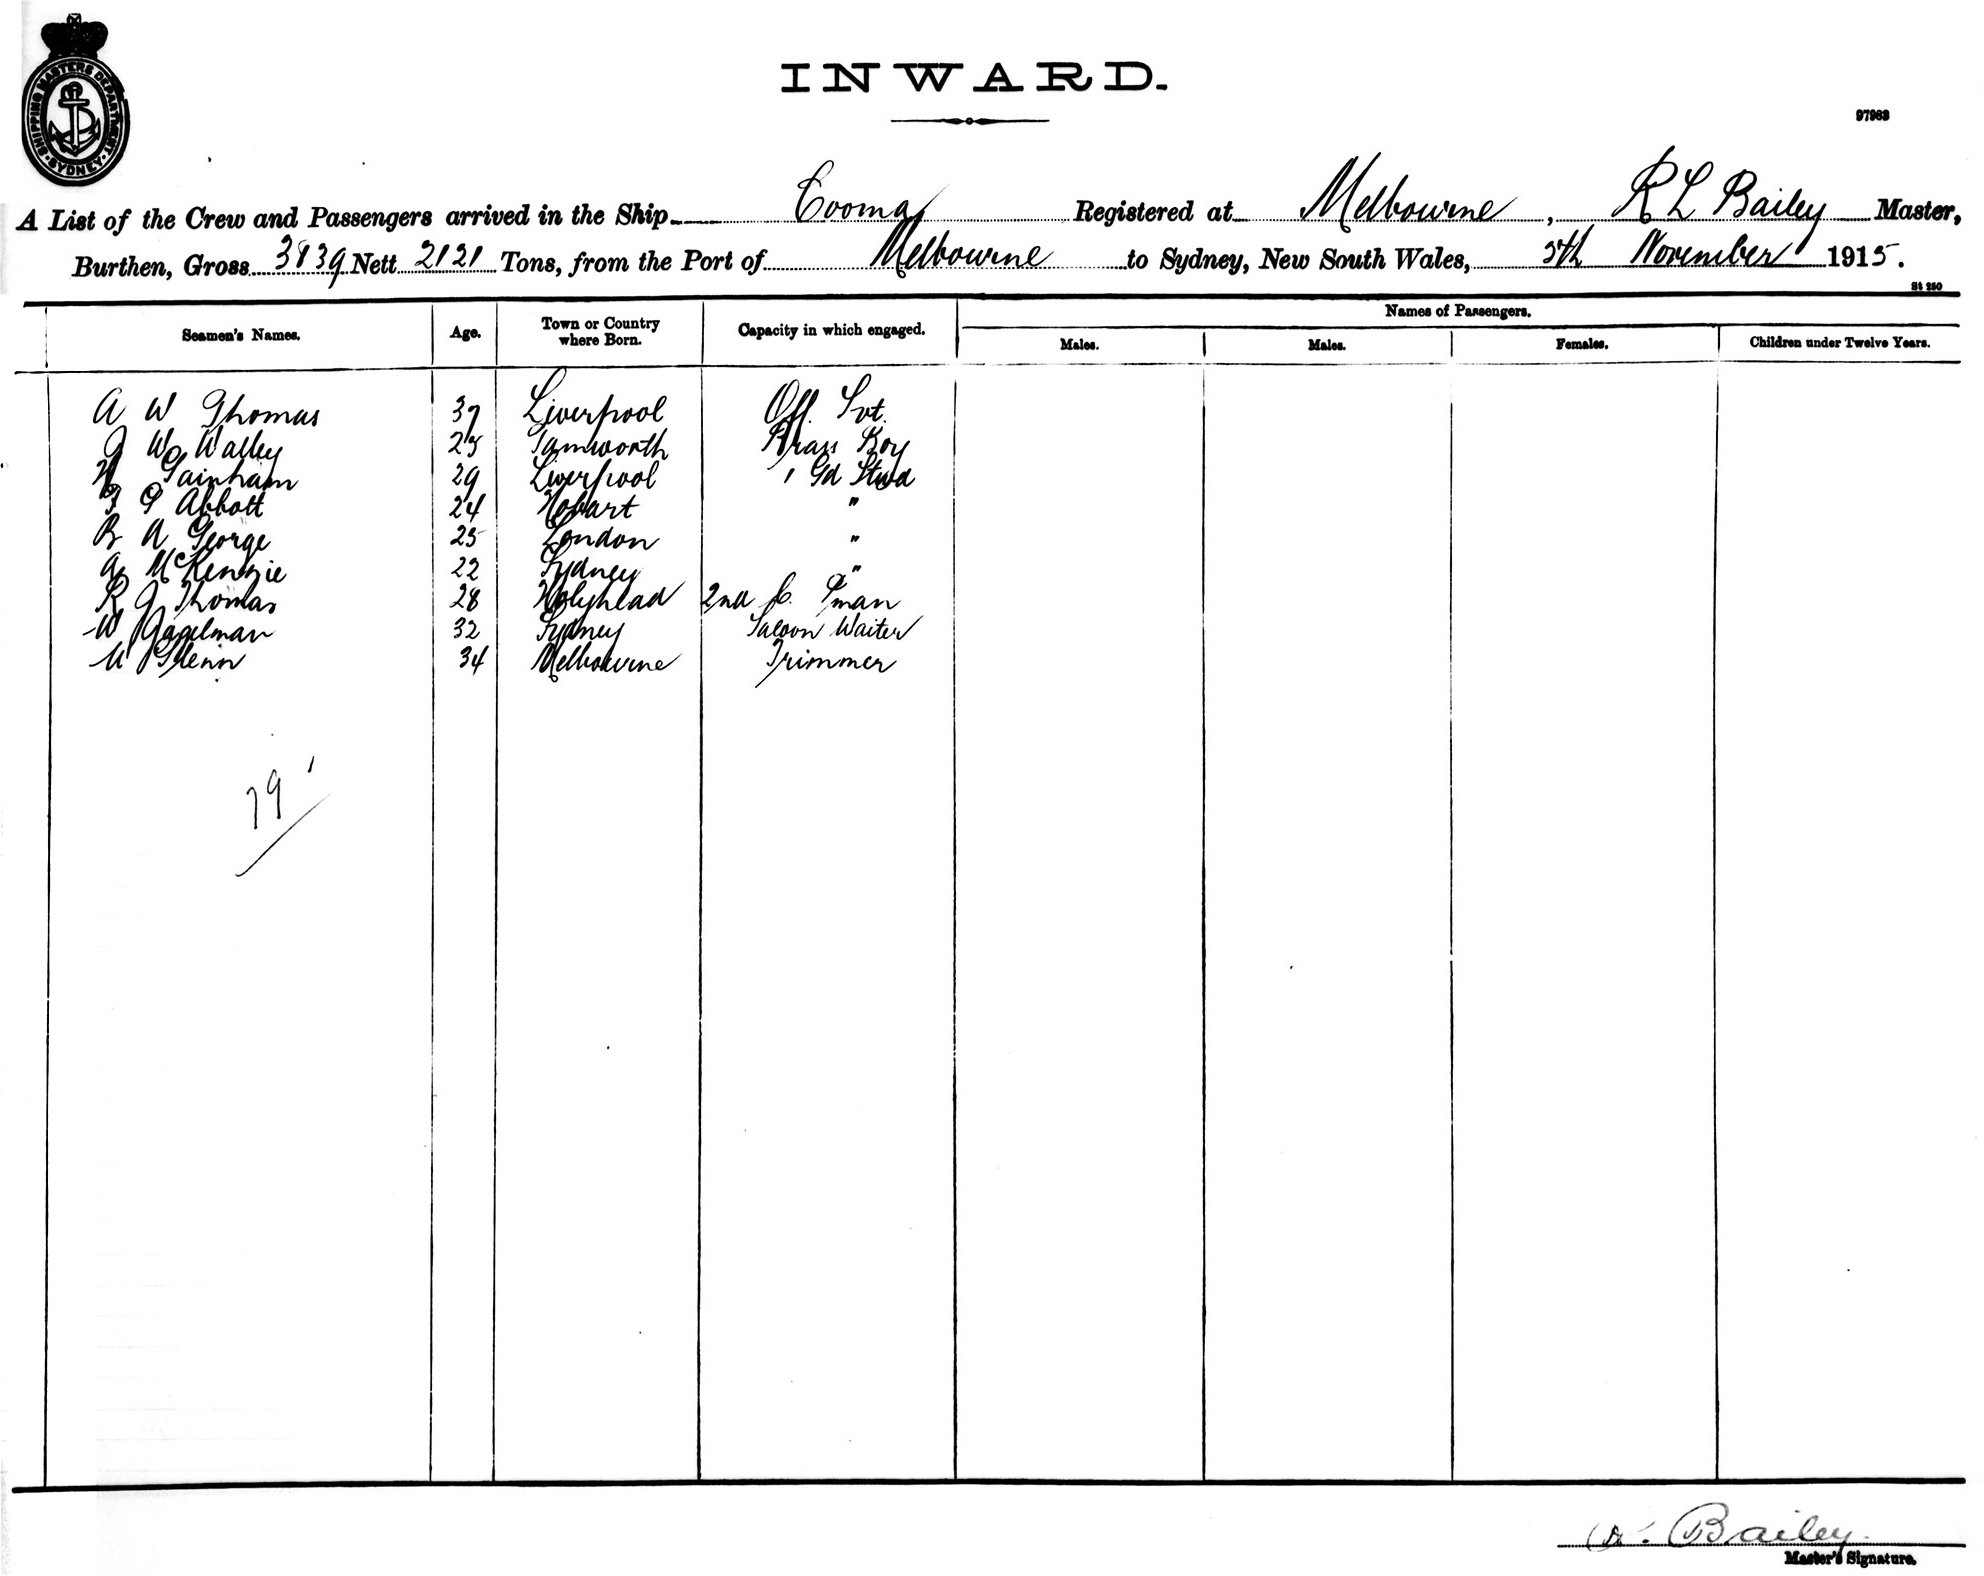 SHIPPING MASTERS DEPARTMENT. SYDNEY
INWARD.
97963
A List of the Crew and Passengers arrived in the Ship Cooma Registered at Melbourne, R L Bailey Master,
Burthen, Gross 3839 Nett 2121 Tons, from the Port of Melbourne to Sydney, New South Wales, 5th November 1915.
St 250
Names of Passengers.
Seamen's Names. Age. Town or Country where Born. Capacity in which engaged. Males. Males. Females. Children under Twelve Years.
A W Thomas 37 Liverpool Off. Svt.
W Walley 25 Tamworth Brass Boy
Gainham 29 Liverpool Gd Stwd
Abbott 24 Hobart "
B A George 25 London "
McKenzie 22 Sydney "
R J Thomas 28 Holyhead 2nd P'man
W 32 Sydney Saloon Waiter
Glenn 34 Melbourne Trimmer
79
Bailey
Master's Signature.